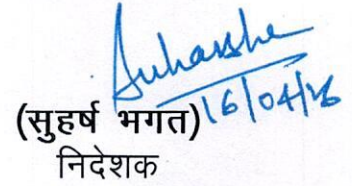 Suharsha
16/04/26
(सुहर्ष भगत)
निदेशक